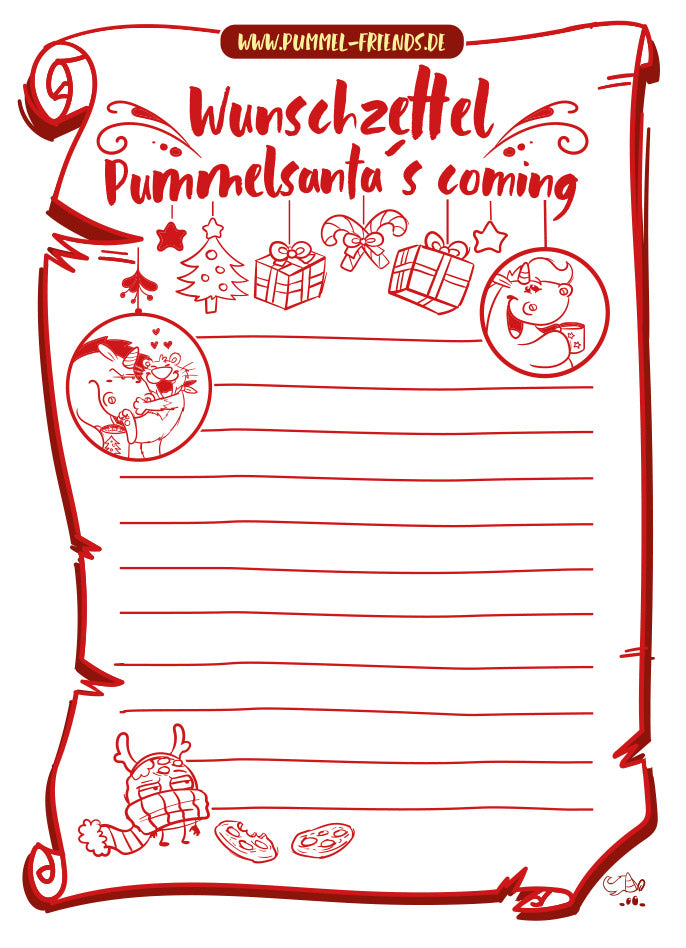 WWW.PUMMEL-FRIENDS.DE
Wunschzettel
Pummelsanta´s coming